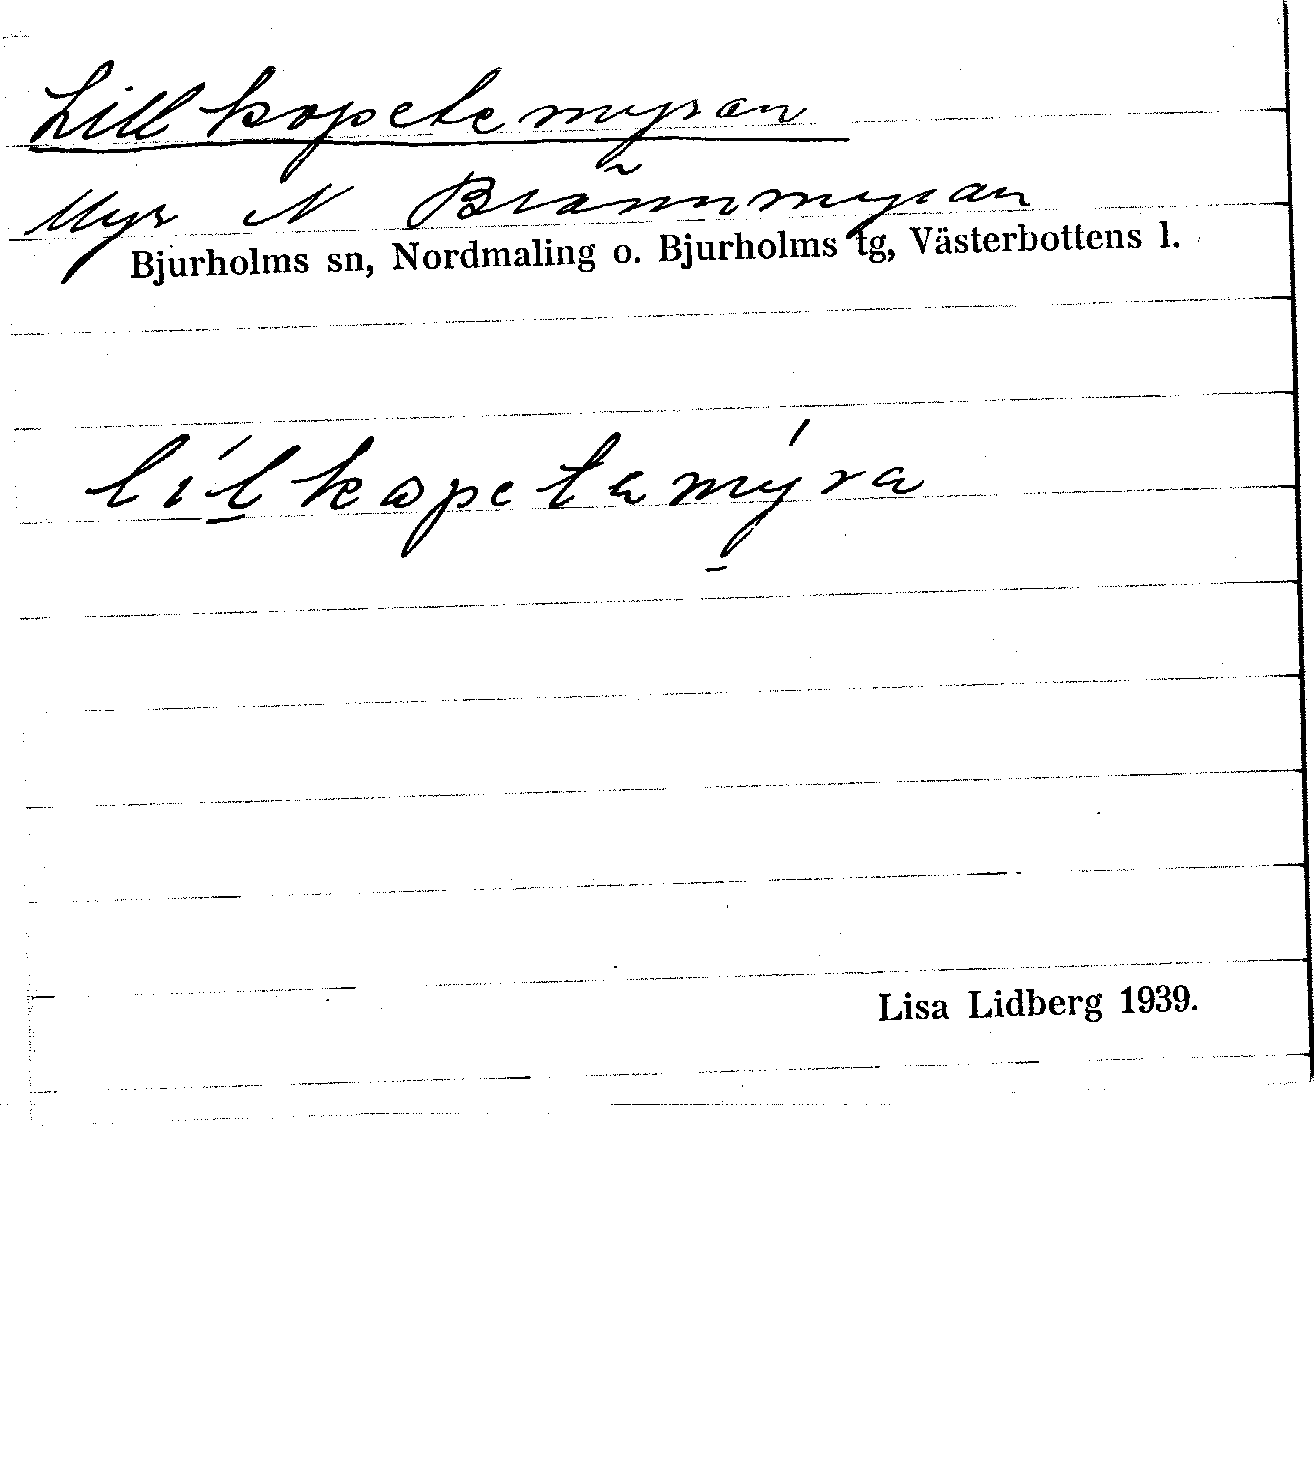 Lillkopetemyran
Myr N Brännmyran
Bjurholms sn, Nordmaling o. Bjurholms tg, Västerbottens l.
líl̠kopetamý̠ra
Lisa Lidberg 1939.